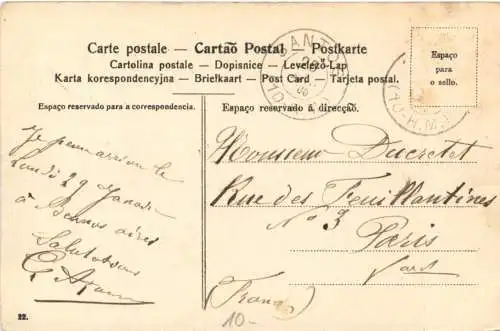 Carte postale — Cartaõ Postal — Postkarte
Cartolina postale — Dopisnice — Levelezŏ-Lap
Karta korespondencyjna — Briefkaart — Post Card — Tarjeta postal.
SANTOS
Espaço
para
o sello.
Espaço reservado para a correspondencia.
Je pense arriver le
Lundi 29 Janvier
à Buenos aires
Salutations
Espaço reservado á direcção.
Monsieur Ducretet
Rue des Feuillantines
No 3
Paris
(France)
10-
22.